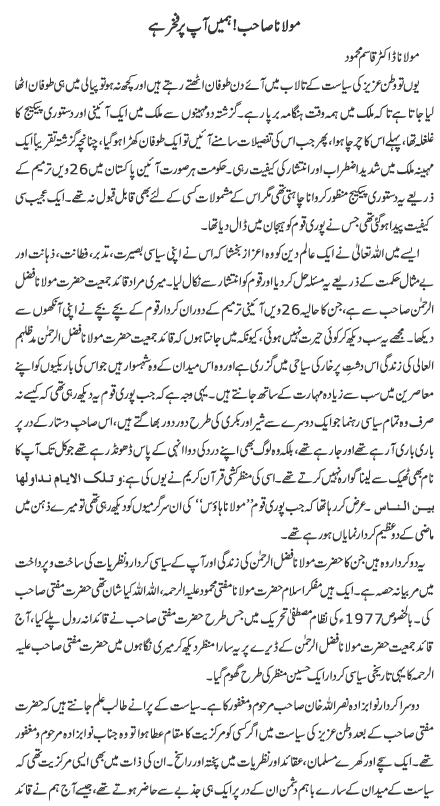 مولانا صاحب! ہمیں آپ پر فخر ہے
مولانا ڈاکٹر قاسم محمود
یوں تو وطن عزیز کی سیاست کے تالاب میں آئے دن طوفان اٹھتے رہتے ہیں اور کچھ نہ ہو تو پیالی میں ہی طوفان اٹھا
لیا جاتا ہے تاکہ ملک میں ہمہ وقت ہنگامہ برپا رہے۔ گزشتہ دو مہینوں سے ملک میں ایک آئینی اور دستوری پیکیج کا
غلغلہ تھا، پہلے اس کا چرچا ہوا، پھر جب اس کی تفصیلات سامنے آئیں تو ایک طوفان کھڑا ہو گیا، چنانچہ گزشتہ تقریباً ایک
مہینہ ملک میں شدید اضطراب اور انتشار کی کیفیت رہی۔ حکومت ہر صورت آئین پاکستان میں 26 ویں ترمیم کے
ذریعے یہ دستوری پیکیج منظور کروانا چاہتی تھی مگر اس کے مشمولات کسی کے لئے بھی قابل قبول نہ تھے۔ ایک عجیب سی
کیفیت پیدا ہو گئی تھی جس نے پوری قوم کو ہیجان میں ڈال دیا تھا۔
ایسے میں اللہ تعالیٰ نے ایک عالم دین کو وہ اعزاز بخشا کہ اس نے اپنی سیاسی بصیرت، تدبر، فطانت، ذہانت اور
بے مثال حکمت کے ذریعے یہ مسئلہ حل کر دیا اور قوم کو انتشار سے نکال لیا۔ میری مراد قائد جمعیت حضرت مولانا فضل
الرحمٰن صاحب سے ہے، جن کا حالیہ 26 ویں آئینی ترمیم کے دوران کردار قوم کے بچے بچے نے اپنی آنکھوں سے
دیکھا۔ مجھے یہ سب دیکھ کر کوئی حیرت نہیں ہوئی، کیونکہ میں جانتا ہوں کہ قائد جمعیت حضرت مولانا فضل الرحمٰن مدظلہم
العالی کی زندگی اس دشتِ پرخار کی سیاحی میں گزری ہے اور وہ اس میدان کے وہ شہسوار ہیں جو اس کی باریکیوں کو اپنے
معاصرین میں سب سے زیادہ مہارت کے ساتھ جانتے ہیں۔ یہی وجہ ہے کہ جب پوری قوم یہ دیکھ رہی تھی کہ کیسے نہ
صرف وہ تمام سیاسی رہنما جو ایک دوسرے سے شیر اور بکری کی طرح دور دور بھاگتے ہیں، اس صاحب دستار کے در پر
باری باری آرہے تھے اور جا رہے تھے، بلکہ وہ لوگ بھی اپنے درد کی دوا انہی کے پاس ڈھونڈ رہے تھے جو کل تک آپ کا
نام بھی ٹھیک سے لینا گوارہ نہیں کرتے تھے۔ اسی کی منظرکشی قرآن کریم نے یوں کی ہے: و تلک الایام نداولھا
بین الناس۔ عرض کر رہا تھا کہ جب پوری قوم ’’مولانا ہاؤس‘‘ کی ان سرگرمیوں کو دیکھ رہی تھی تو میرے ذہن میں
ماضی کے دو عظیم کردار نمایاں ہو رہے تھے۔
یہ دو کردار وہ ہیں جن کا حضرت مولانا فضل الرحمٰن کی زندگی اور آپ کے سیاسی کردار و نظریات کی ساخت و پرداخت
میں مربیانہ حصہ ہے۔ ایک ہیں مفکر اسلام حضرت مولانا مفتی محمود علیہ الرحمہ، اللہ اللہ کیا شان تھی حضرت مفتی صاحب
کی۔ بالخصوص 1977ء کی نظام مصطفیٰ تحریک میں جس طرح حضرت مفتی صاحب نے قائدانہ رول پلے کیا، آج
قائد جمعیت حضرت مولانا فضل الرحمٰن کے ڈیرے پر یہ سارا منظر دیکھ کر میری نگاہوں میں حضرت مفتی صاحب علیہ
الرحمہ کا یہی تاریخی سیاسی کردار ایک حسین منظر کی طرح گھوم گیا۔
دوسرا کردار نوابزادہ نصر اللہ خان صاحب مرحوم و مغفور کا ہے۔ سیاست کے پرانے طالب علم جانتے ہیں کہ حضرت
مفتی صاحب کے بعد وطن عزیز کی سیاست میں اگر کسی کو مرکزیت کا مقام عطا ہوا تو وہ جناب نوابزادہ مرحوم و مغفور
تھے۔ ایک سچے اور کھرے مسلمان، عقائد اور نظریات میں پختہ اور راسخ۔ ان کی ذات میں بھی ایسی مرکزیت تھی کہ
سیاست کے میدان کے سارے باہم دشمن ان کے در پر ایک ہی جذبے سے حاضر ہوتے تھے، جیسے آج ہم نے قائد